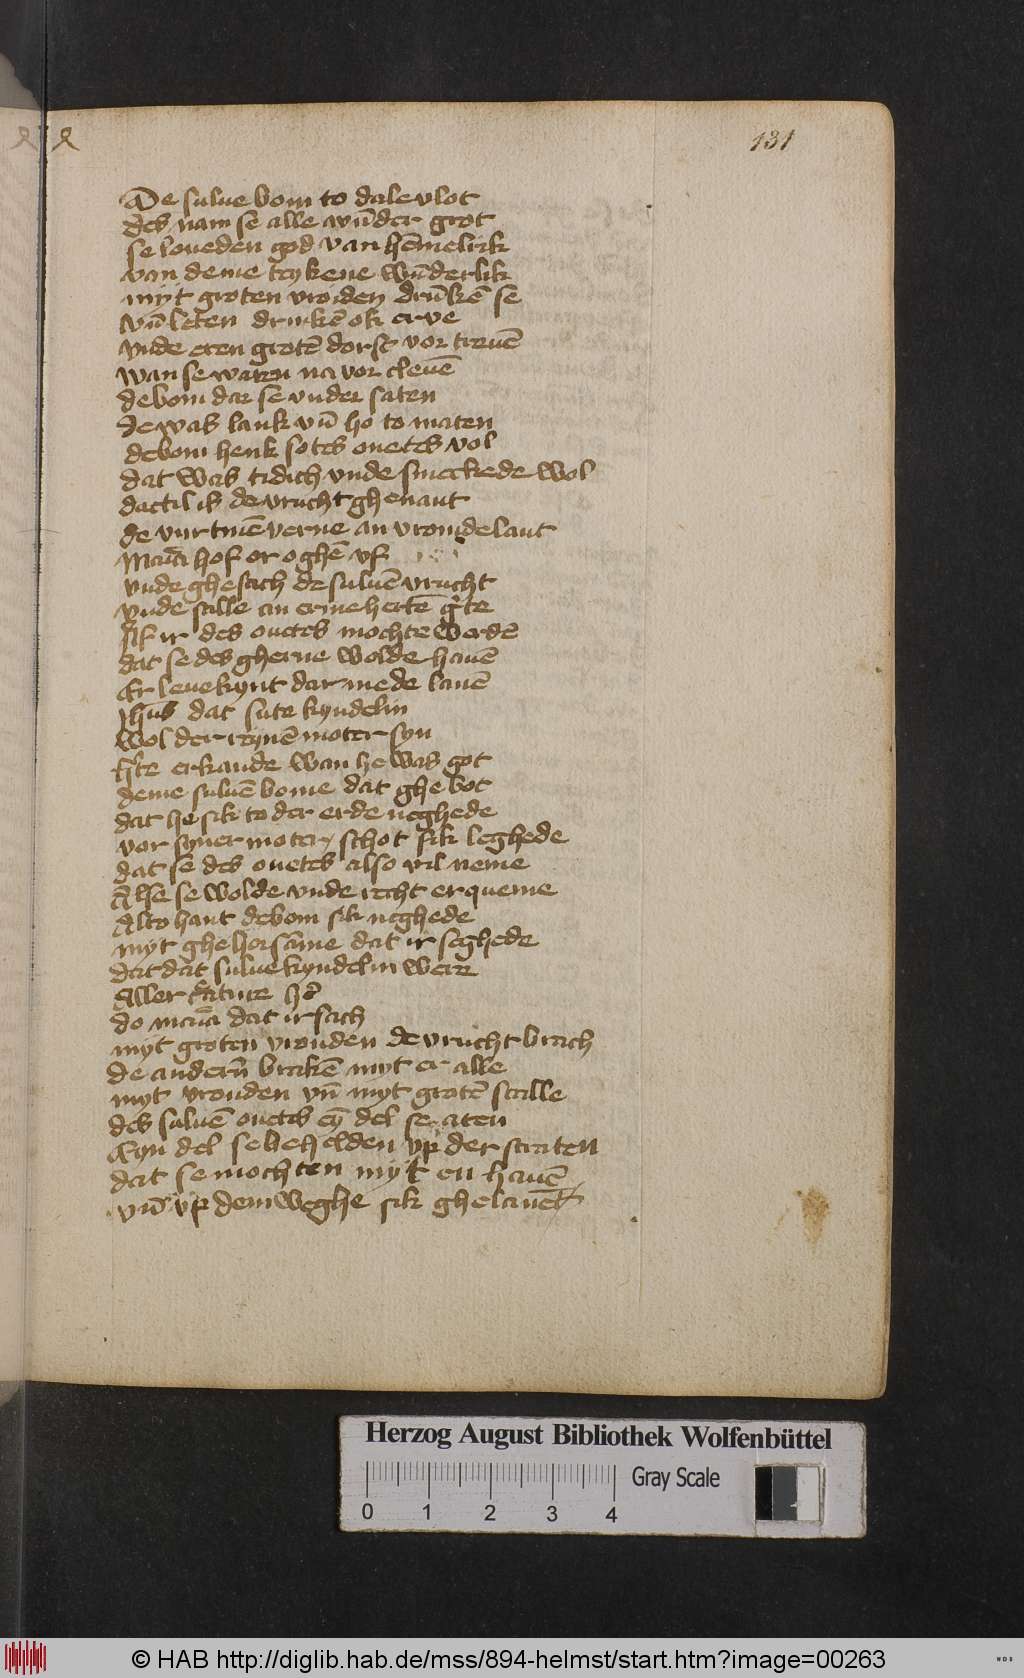 131
De sulue bom to dale vlot
des nam se alle wūder grot
se loueden god van hēmelrik
van deme teykene wūderlik
myt groten vroiden drūkē se
vn̄ leten drinkē ok erve
vnde eren grotē dorst vor treuē
wan se waren na vor cleuē
de bom dar se vnder saten
de was lank vn̄ ho to maten
de bom henk sotes ouetes vol
dat was tidich vnde smeckede wol
dactil is de vrucht ghenant
de vnrtmē verne an vromde lant
Maria hof or oghē vf
vnde ghesach de suluē vrucht
vnde stille an erme hertē
sik ir des ouetes mochte werdē
dat se des gherne wolde hauē
Er leue kynt dar mede lauē
Jhūs dat sute kyndelin
wol der reynē moter syn
erkande wan he was got
deme suluē bome dat ghebot
dat he sik to der erde neghede
vor syner moter schot sik leghede
dat se des ouetes also vil neme
Alse se wolde vnde recht er queme
Alto hant de bom sik neghede
myt ghehorsāme dat ir seghede
dat dat sulue kyndelin were
Aller
do maria dat ir sach
myt groten vrouden de vrucht brach
de andern̄ brakē myt er alle
myt vrouden vn̄ myt grotē scalle
des suluē ouetes eȳ del se aten
Eyn del se behelden vp der straten
dat se mochten myt en hauē
vn̄ vp dem weghe sik ghelauēt
Herzog August Bibliothek Wolfenbüttel
Gray Scale
0 1 2 3 4
© HAB http://diglib.hab.de/mss/894-helmst/start.htm?image=00263